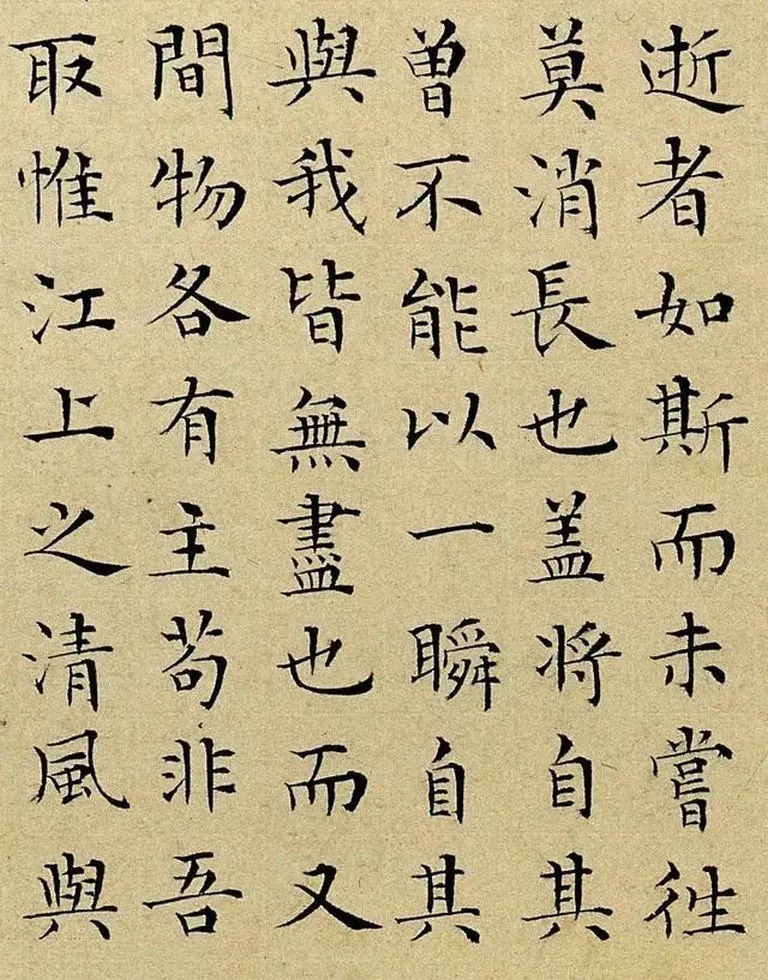 逝者如斯而未嘗徃
莫消長也盖將自其
曾不能以一瞬自其
與我皆無盡也而又
間物各有主苟非吾
取惟江上之清風與